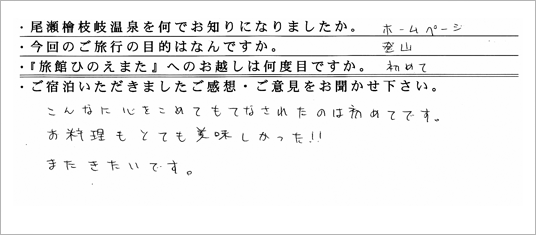 ・尾瀬檜枝岐温泉を何でお知りになりましたか。 ホームページ
・今回のご旅行の目的はなんですか。 登山
・『旅館ひのえまた』へのお越しは何度目ですか。 初めて
・ご宿泊いただきましたご感想・ご意見をお聞かせ下さい。
こんなに心をこめてもてなされたのは初めてです。
お料理もとても美味しかった!!
またきたいです。